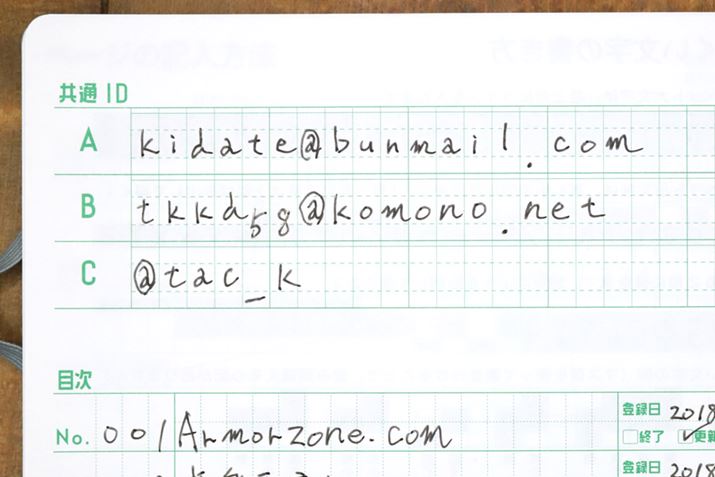 共通ID
A kidate@bunmail.com
B tkkd58@komono.net
C @tac_k
目次
No. 001 Armorzone.com 登録日 2018
終了 更新
登録日 2018